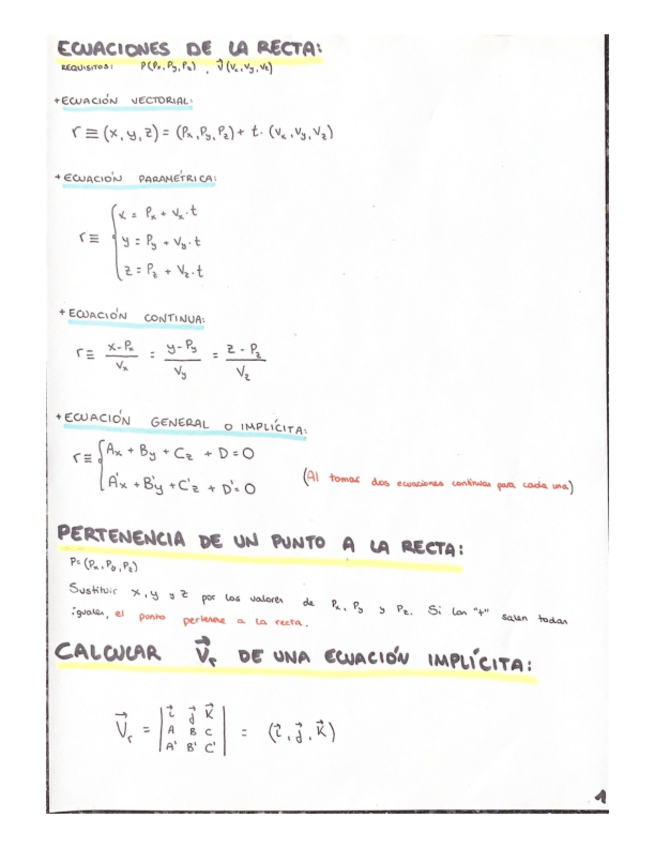 ECUACIONES DE LA RECTA:
REQUISITOS: P(Px, Py, Pz) , V⃗(Vx, Vy, Vz)
+ECUACIÓN VECTORIAL:
r ≡ (x, y, z) = (Px, Py, Pz) + t · (Vx, Vy, Vz)
+ECUACIÓN PARAMÉTRICA:
x = Px + Vx · t
r ≡ { y = Py + Vy · t
z = Pz + Vz · t
+ECUACIÓN CONTINUA:
r ≡ (x - Px)/Vx = (y - Py)/Vy = (z - Pz)/Vz
+ECUACIÓN GENERAL O IMPLÍCITA:
r ≡ { Ax + By + Cz + D = 0
A'x + B'y + C'z + D' = 0 (Al tomar dos ecuaciones continuas para cada una)
PERTENENCIA DE UN PUNTO A LA RECTA:
P = (Px, Py, Pz)
Sustituir x, y y z por los valores de Px, Py y Pz. Si las "t" salen todas
iguales, el punto pertenece a la recta.
CALCULAR V⃗r DE UNA ECUACIÓN IMPLÍCITA:
i⃗ j⃗ k⃗
V⃗r = | A B C | = (i⃗, j⃗, k⃗)
A' B' C'
1